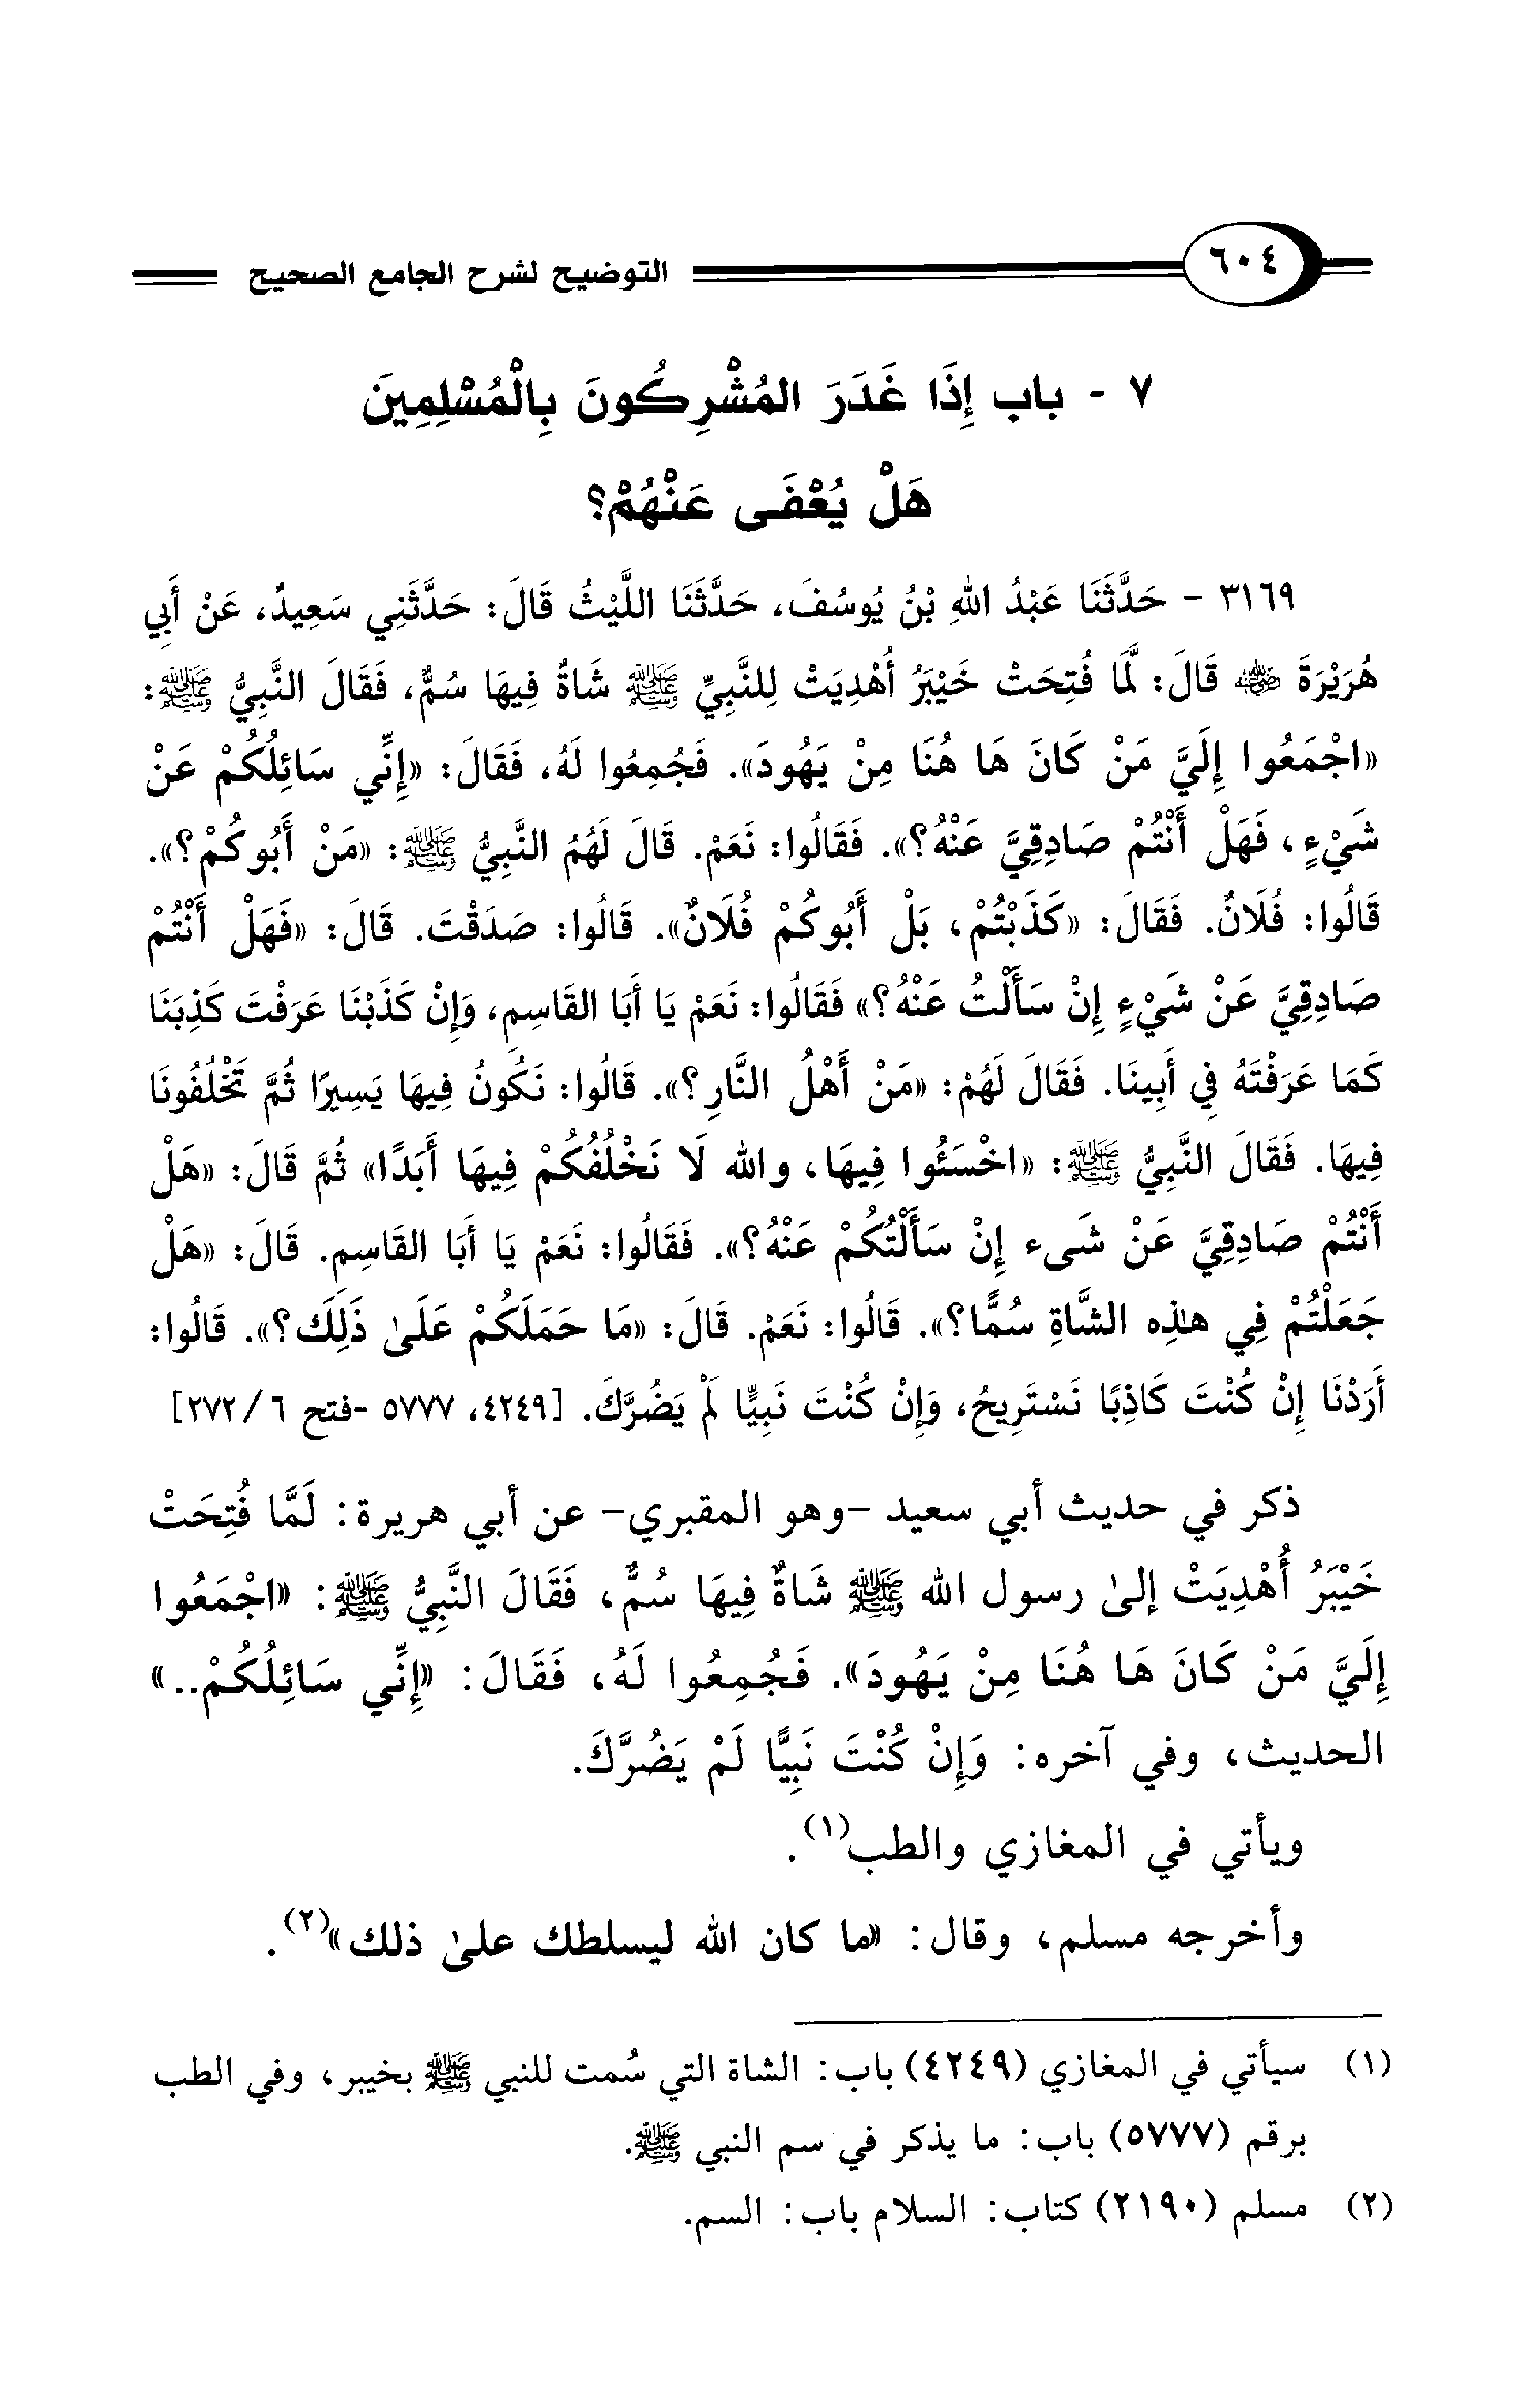 ٦٠٤ التوضيح لشرح الجامع الصحيح
٧ - باب إِذَا غَدَرَ المُشْرِكُونَ بِالْمُسْلِمِينَ
هَلْ يُعْفَى عَنْهُمْ؟
٣١٦٩ - حَدَّثَنَا عَبْدُ اللهِ بْنُ يُوسُفَ، حَدَّثَنَا اللَّيْثُ قَالَ: حَدَّثَنِي سَعِيدٌ، عَنْ أَبِي
هُرَيْرَةَ رضي الله عنه قَالَ: لَمَّا فُتِحَتْ خَيْبَرُ أُهْدِيَتْ لِلنَّبِيِّ ﷺ شَاةٌ فِيهَا سُمٌّ، فَقَالَ النَّبِيُّ ﷺ:
«اجْمَعُوا إِلَيَّ مَنْ كَانَ هَا هُنَا مِنْ يَهُودَ». فَجُمِعُوا لَهُ، فَقَالَ: «إِنِّي سَائِلُكُمْ عَنْ
شَيْءٍ، فَهَلْ أَنْتُمْ صَادِقِيَّ عَنْهُ؟». فَقَالُوا: نَعَمْ. قَالَ لَهُمُ النَّبِيُّ ﷺ: «مَنْ أَبُوكُمْ؟».
قَالُوا: فُلَانٌ. فَقَالَ: «كَذَبْتُمْ، بَلْ أَبُوكُمْ فُلَانٌ». قَالُوا: صَدَقْتَ. قَالَ: «فَهَلْ أَنْتُمْ
صَادِقِيَّ عَنْ شَيْءٍ إِنْ سَأَلْتُ عَنْهُ؟» فَقَالُوا: نَعَمْ يَا أَبَا القَاسِمِ، وَإِنْ كَذَبْنَا عَرَفْتَ كَذِبَنَا
كَمَا عَرَفْتَهُ فِي أَبِينَا. فَقَالَ لَهُمْ: «مَنْ أَهْلُ النَّارِ؟». قَالُوا: نَكُونُ فِيهَا يَسِيرًا ثُمَّ تَخْلُفُونَا
فِيهَا. فَقَالَ النَّبِيُّ ﷺ: «اخْسَئُوا فِيهَا، والله لَا نَخْلُفُكُمْ فِيهَا أَبَدًا» ثُمَّ قَالَ: «هَلْ
أَنْتُمْ صَادِقِيَّ عَنْ شَىء إِنْ سَأَلْتُكُمْ عَنْهُ؟». فَقَالُوا: نَعَمْ يَا أَبَا القَاسِمِ. قَالَ: «هَلْ
جَعَلْتُمْ فِي هٰذِه الشَّاةِ سُمًّا؟». قَالُوا: نَعَمْ. قَالَ: «مَا حَمَلَكُمْ عَلَىٰ ذَلِكَ؟». قَالُوا:
أَرَدْنَا إِنْ كُنْتَ كَاذِبًا نَسْتَرِيحُ، وَإِنْ كُنْتَ نَبِيًّا لَمْ يَضُرَّكَ. [٤٢٤٩، ٥٧٧٧ -فتح ٦/ ٢٧٢]
ذكر في حديث أبي سعيد -وهو المقبري- عن أبي هريرة: لَمَّا فُتِحَتْ
خَيْبَرُ أُهْدِيَتْ إلىٰ رسول الله ﷺ شَاةٌ فِيهَا سُمٌّ، فَقَالَ النَّبِيُّ ﷺ: «اجْمَعُوا
إِلَيَّ مَنْ كَانَ هَا هُنَا مِنْ يَهُودَ». فَجُمِعُوا لَهُ، فَقَالَ: «إِنِّي سَائِلُكُمْ..»
الحديث، وفي آخره: وَإِنْ كُنْتَ نَبِيًّا لَمْ يَضُرَّكَ.
ويأتي في المغازي والطب(١).
وأخرجه مسلم، وقال: «ما كان الله ليسلطك علىٰ ذلك»(٢).
(١) سيأتي في المغازي (٤٢٤٩) باب: الشاة التي سُمت للنبي ﷺ بخيبر، وفي الطب
برقم (٥٧٧٧) باب: ما يذكر في سم النبي ﷺ.
(٢) مسلم (٢١٩٠) كتاب: السلام باب: السم.